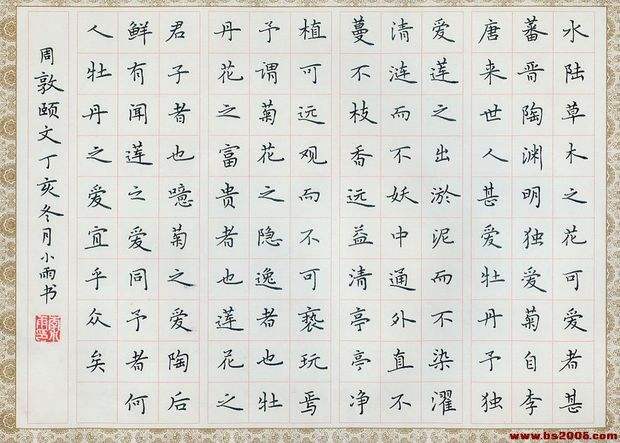 水陆草木之花可爱者甚
蕃晋陶渊明独爱菊自李
唐来世人甚爱牡丹予独
爱莲之出淤泥而不染濯
清涟而不妖中通外直不
蔓不枝香远益清亭亭净
植可远观而不可亵玩焉
予谓菊花之隐逸者也牡
丹花之富贵者也莲花之
君子者也噫菊之爱陶后
鲜有闻莲之爱同予者何
人牡丹之爱宜乎众矣
周敦颐文丁亥冬月小雨书
www.bs2005.com